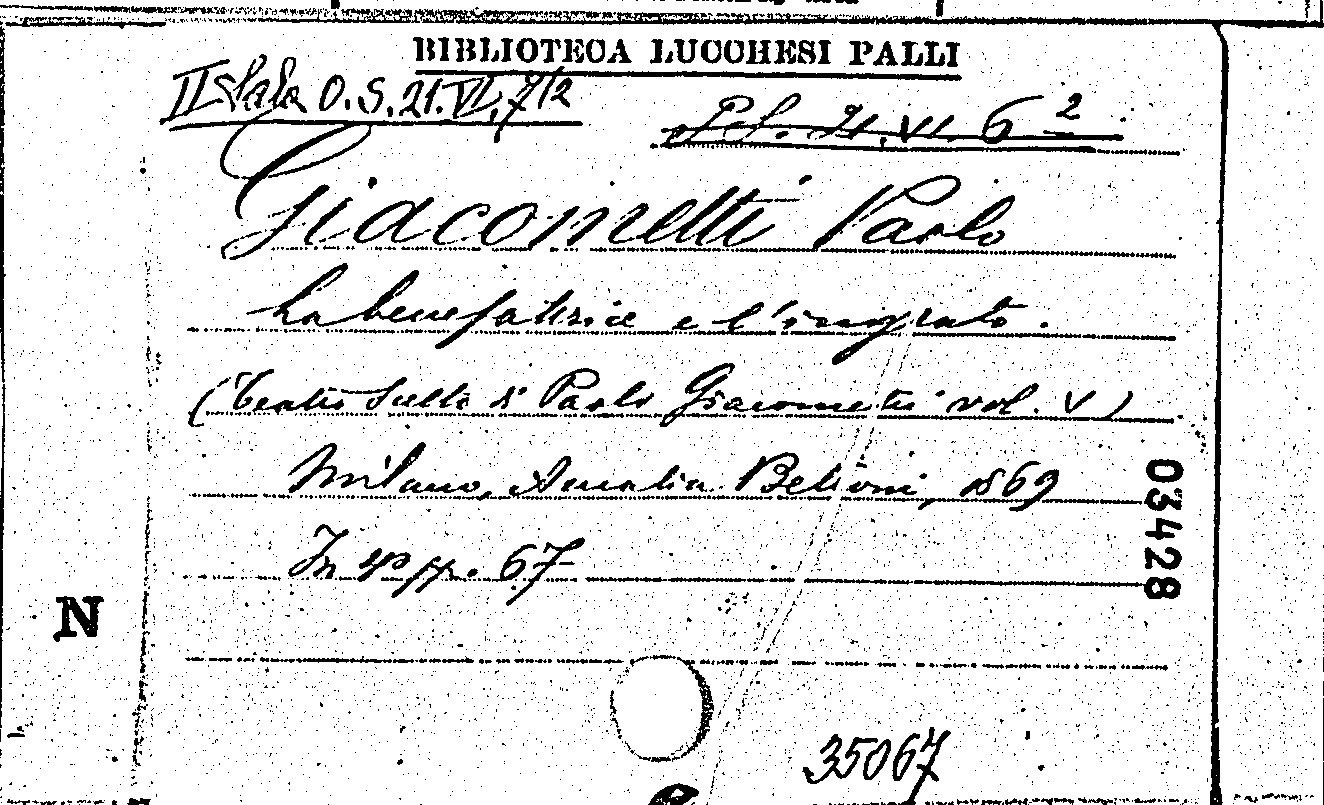 BIBLIOTECA LUCCHESI PALLI
II Sala O.S. 21. VI. 7/2
21. VI. 6 2
Giacometti Paolo
La benefattrice e l'ingrato.
(Teatro scelto di Paolo Giacometti vol. V)
Milano, Amalia Bettoni, 1869
In 4° pp. 67
03428
N
35067